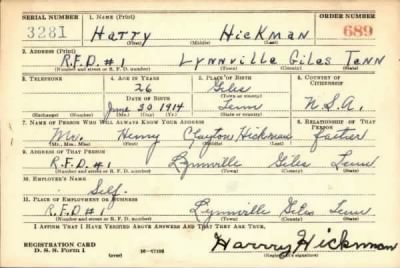 SERIAL NUMBER 1. NAME (Print) ORDER NUMBER
3281 Harry Hickman 689
(First) (Middle) (Last)
2. ADDRESS (Print)
R.F.D. #1 Lynnville Giles Tenn
(Number and street or R. F. D. number) (Town) (County) (State)
3. TELEPHONE 4. AGE IN YEARS 5. PLACE OF BIRTH 6. COUNTRY OF CITIZENSHIP
26 Giles
DATE OF BIRTH (Town or county)
June 30 1914 Tenn U.S.A.
(Exchange) (Number) (Mo.) (Day) (Yr.) (State or country)
7. NAME OF PERSON WHO WILL ALWAYS KNOW YOUR ADDRESS 8. RELATIONSHIP OF THAT PERSON
Mr. Henry Clayton Hickman father
(Mr., Mrs., Miss) (First) (Middle) (Last)
9. ADDRESS OF THAT PERSON
R.F.D. #1 Lynnville Giles Tenn
(Number and street or R. F. D. number) (Town) (County) (State)
10. EMPLOYER'S NAME
Self
11. PLACE OF EMPLOYMENT OR BUSINESS
R.F.D. #1 Lynnville Giles Tenn
(Number and street or R. F. D. number) (Town) (County) (State)
I AFFIRM THAT I HAVE VERIFIED ABOVE ANSWERS AND THAT THEY ARE TRUE.
REGISTRATION CARD Harrry Hickman
D. S. S. Form 1 (over) (Registrant's signature)